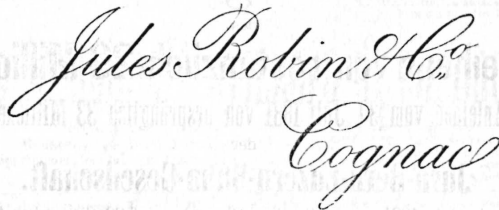 Jules Robin & Co.
Cognac